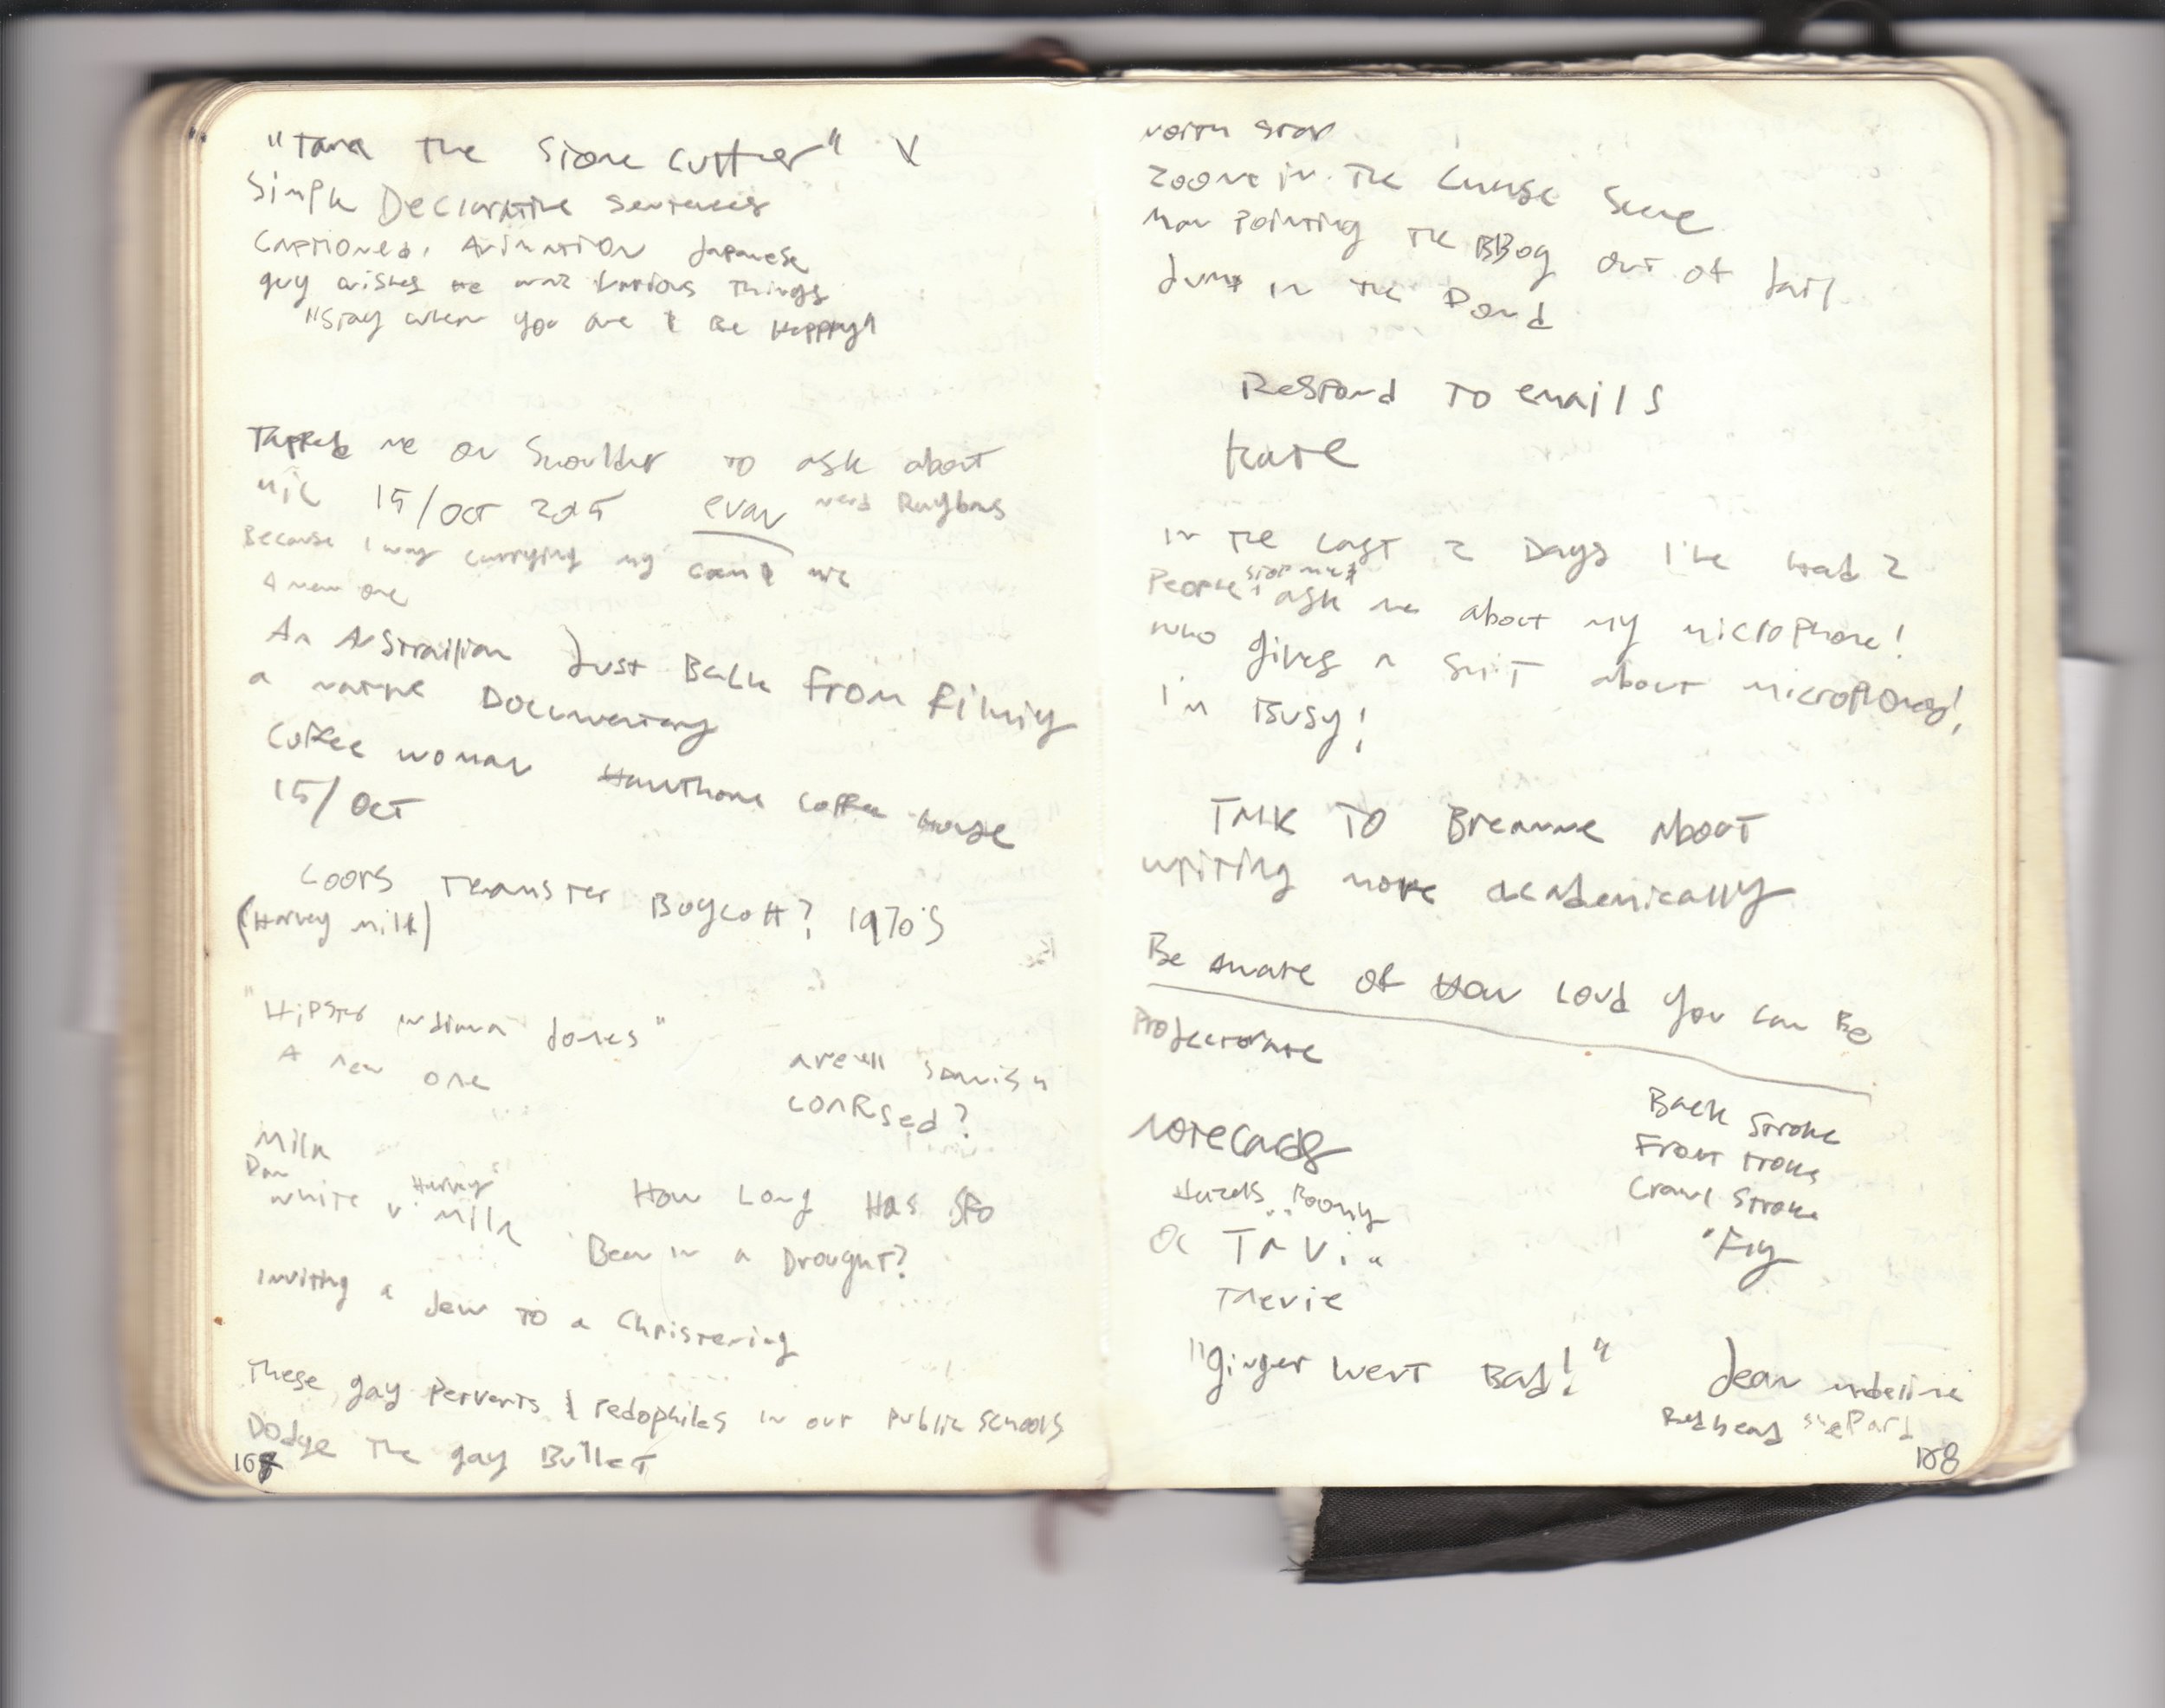 "Tara The Stone Cutther" V
Simple Declarative Sentences
Captioned, Animation Japanese
guy wishes he was various Things
"Stay when you are & Be Happpy"
Tapped me on Shoulder to ask about
mic 15/oct 2015 evan nerd Raybans
Because I was carrying my mic
A new one
An Australian Just Back From Filmig
a nature Documentary
Coffee woman Hawthorne Coffee House
15/Oct
Coors Teamster Boycott? 1970's
(Harvey Milk)
"Hipster indiana Jones"
A new one
are all Spanish
confused?
Milk
Dan White v Harvey Milk
How Long Has SFO
Been in a Drought?
Inviting a Jew to a Christening
These gay Perverts & Pedophiles in our public schools
Dodge The gay Bullet
167
North Star
Zoom in The Chase Scene
Man Pointing The BBog out of Jail
Jump in the Pond
Respond to emails
Kate
in The Last 2 Days I've had 2
People stop me & ask me about my microphone!
who gives a Shit about microphones!,
I'm Busy!
Talk To Breanne About
writing more academically
Be Aware of How Loud You Can Be
Projectorate
Notecards
Back Stroke
Front troke
Crawl Stroke
"Fly
Tavi
Taevie
"ginger went Bad!"
Jean
Redhead Shepard
168